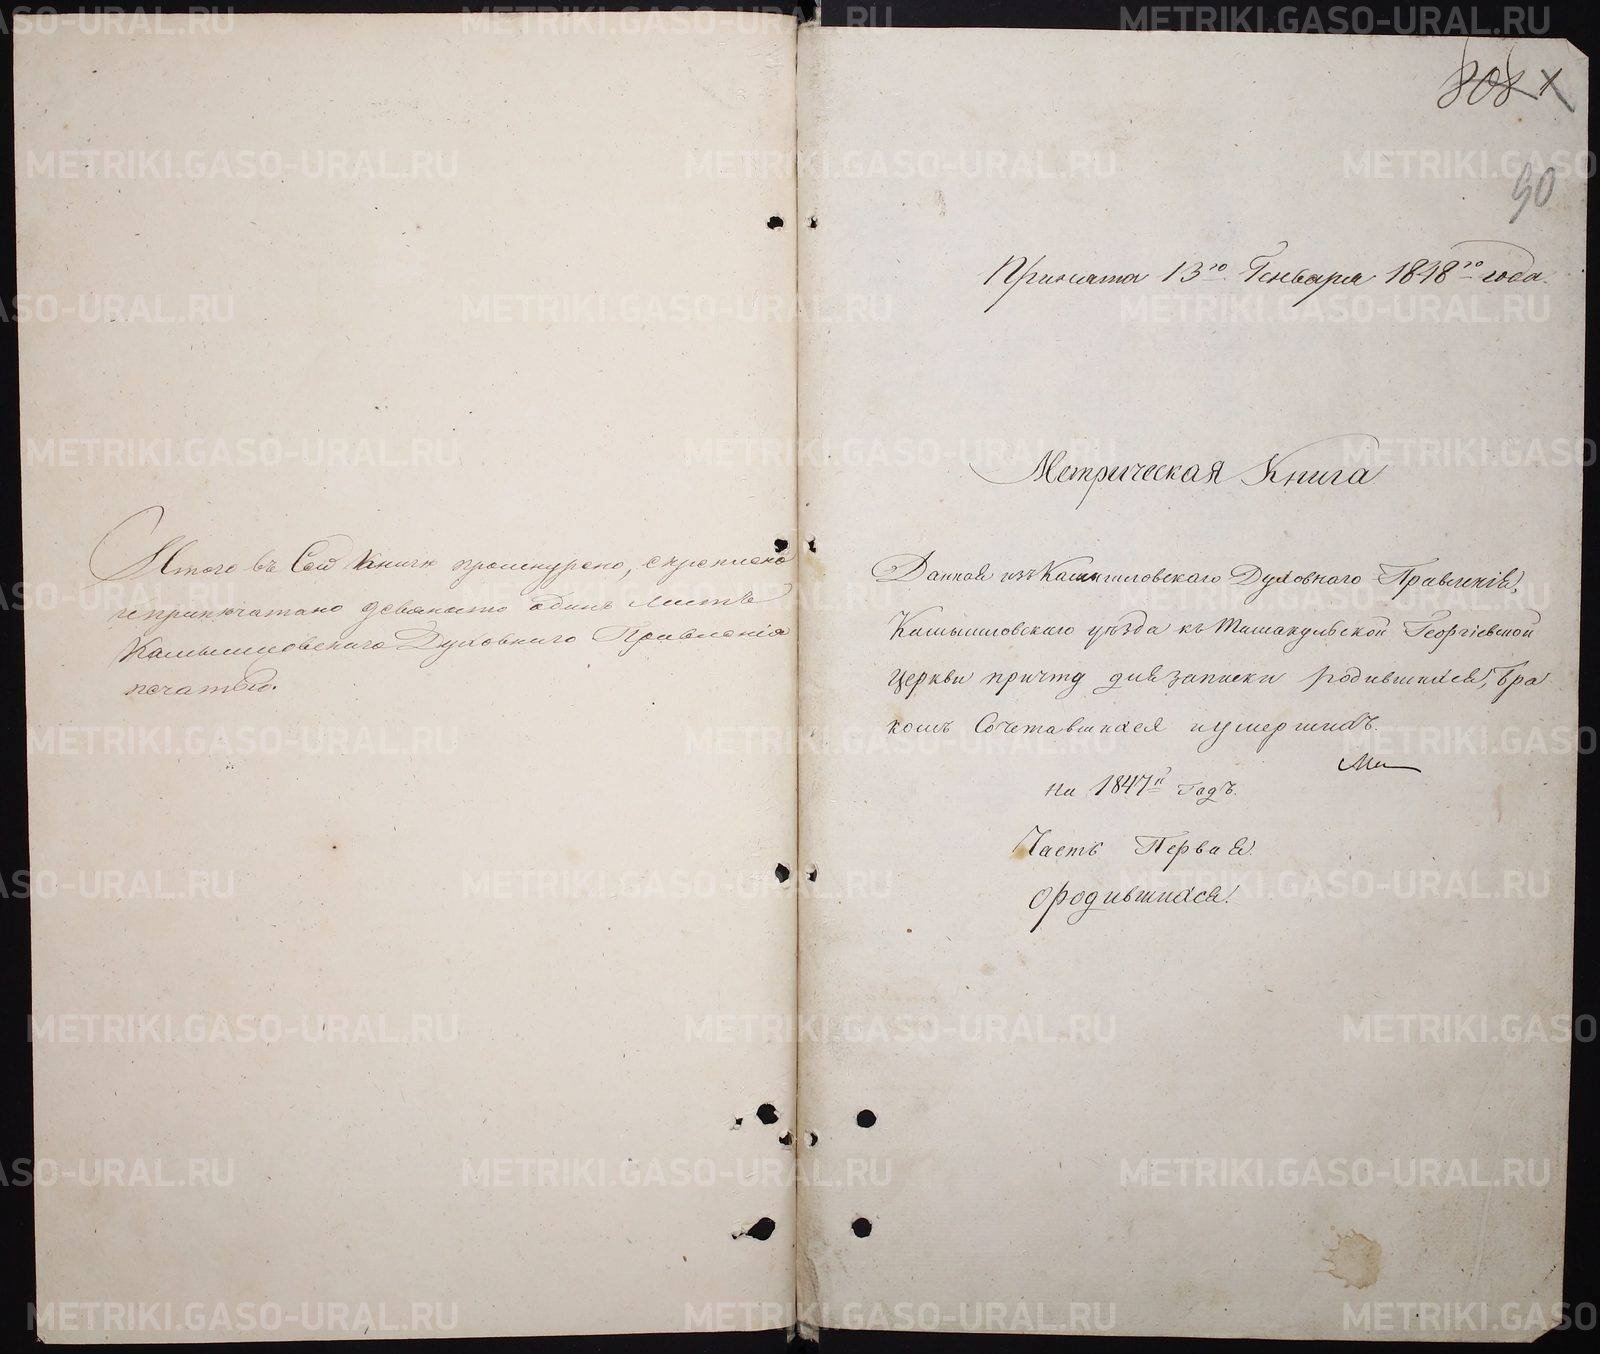 Итого въ Сей Книгѣ прошнурено, скреплено
и припечатано девяносто одинъ листъ
Камышловскаго Духовнаго Правленія
печатью.
808
90
Принята 13го Генваря 1848го года.
Метрическая Книга
Данная изъ Камышловскаго Духовнаго Правленія,
Камышловскаго уѣзда къ Ташакульской Георгіевской
церкви причту для записки родившихся, бра
комъ Сочетавшихся и умершихъ.
на 1847й годъ.
Часть Первая.
о родившихся.